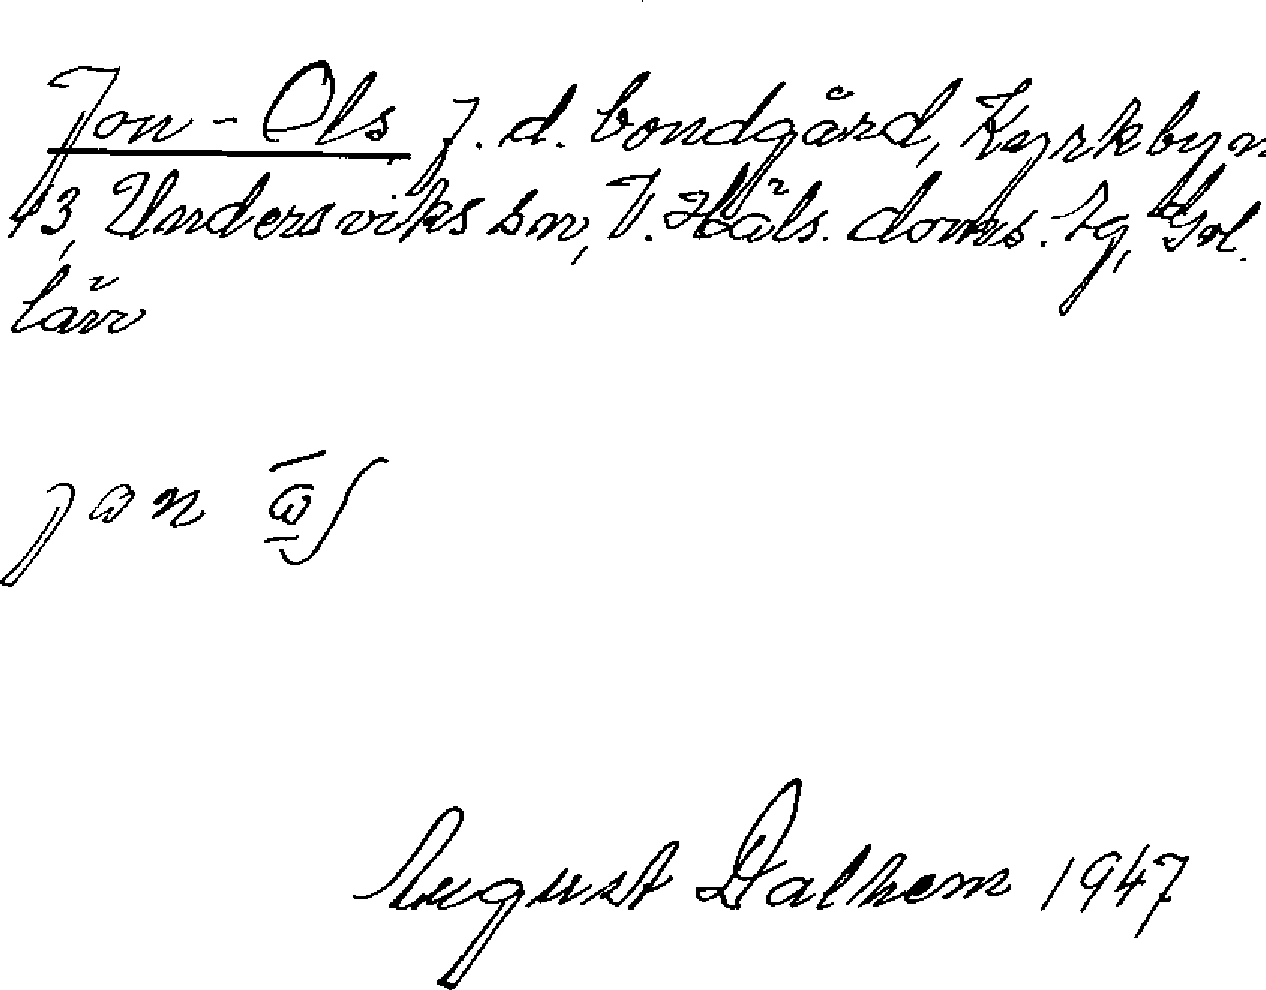 Jon-Ols f. d. bondgård, Kyrkbyn
43, Undersviks sn, V. Häls. doms. lg, Gvl.
län
August Dalhem 1947